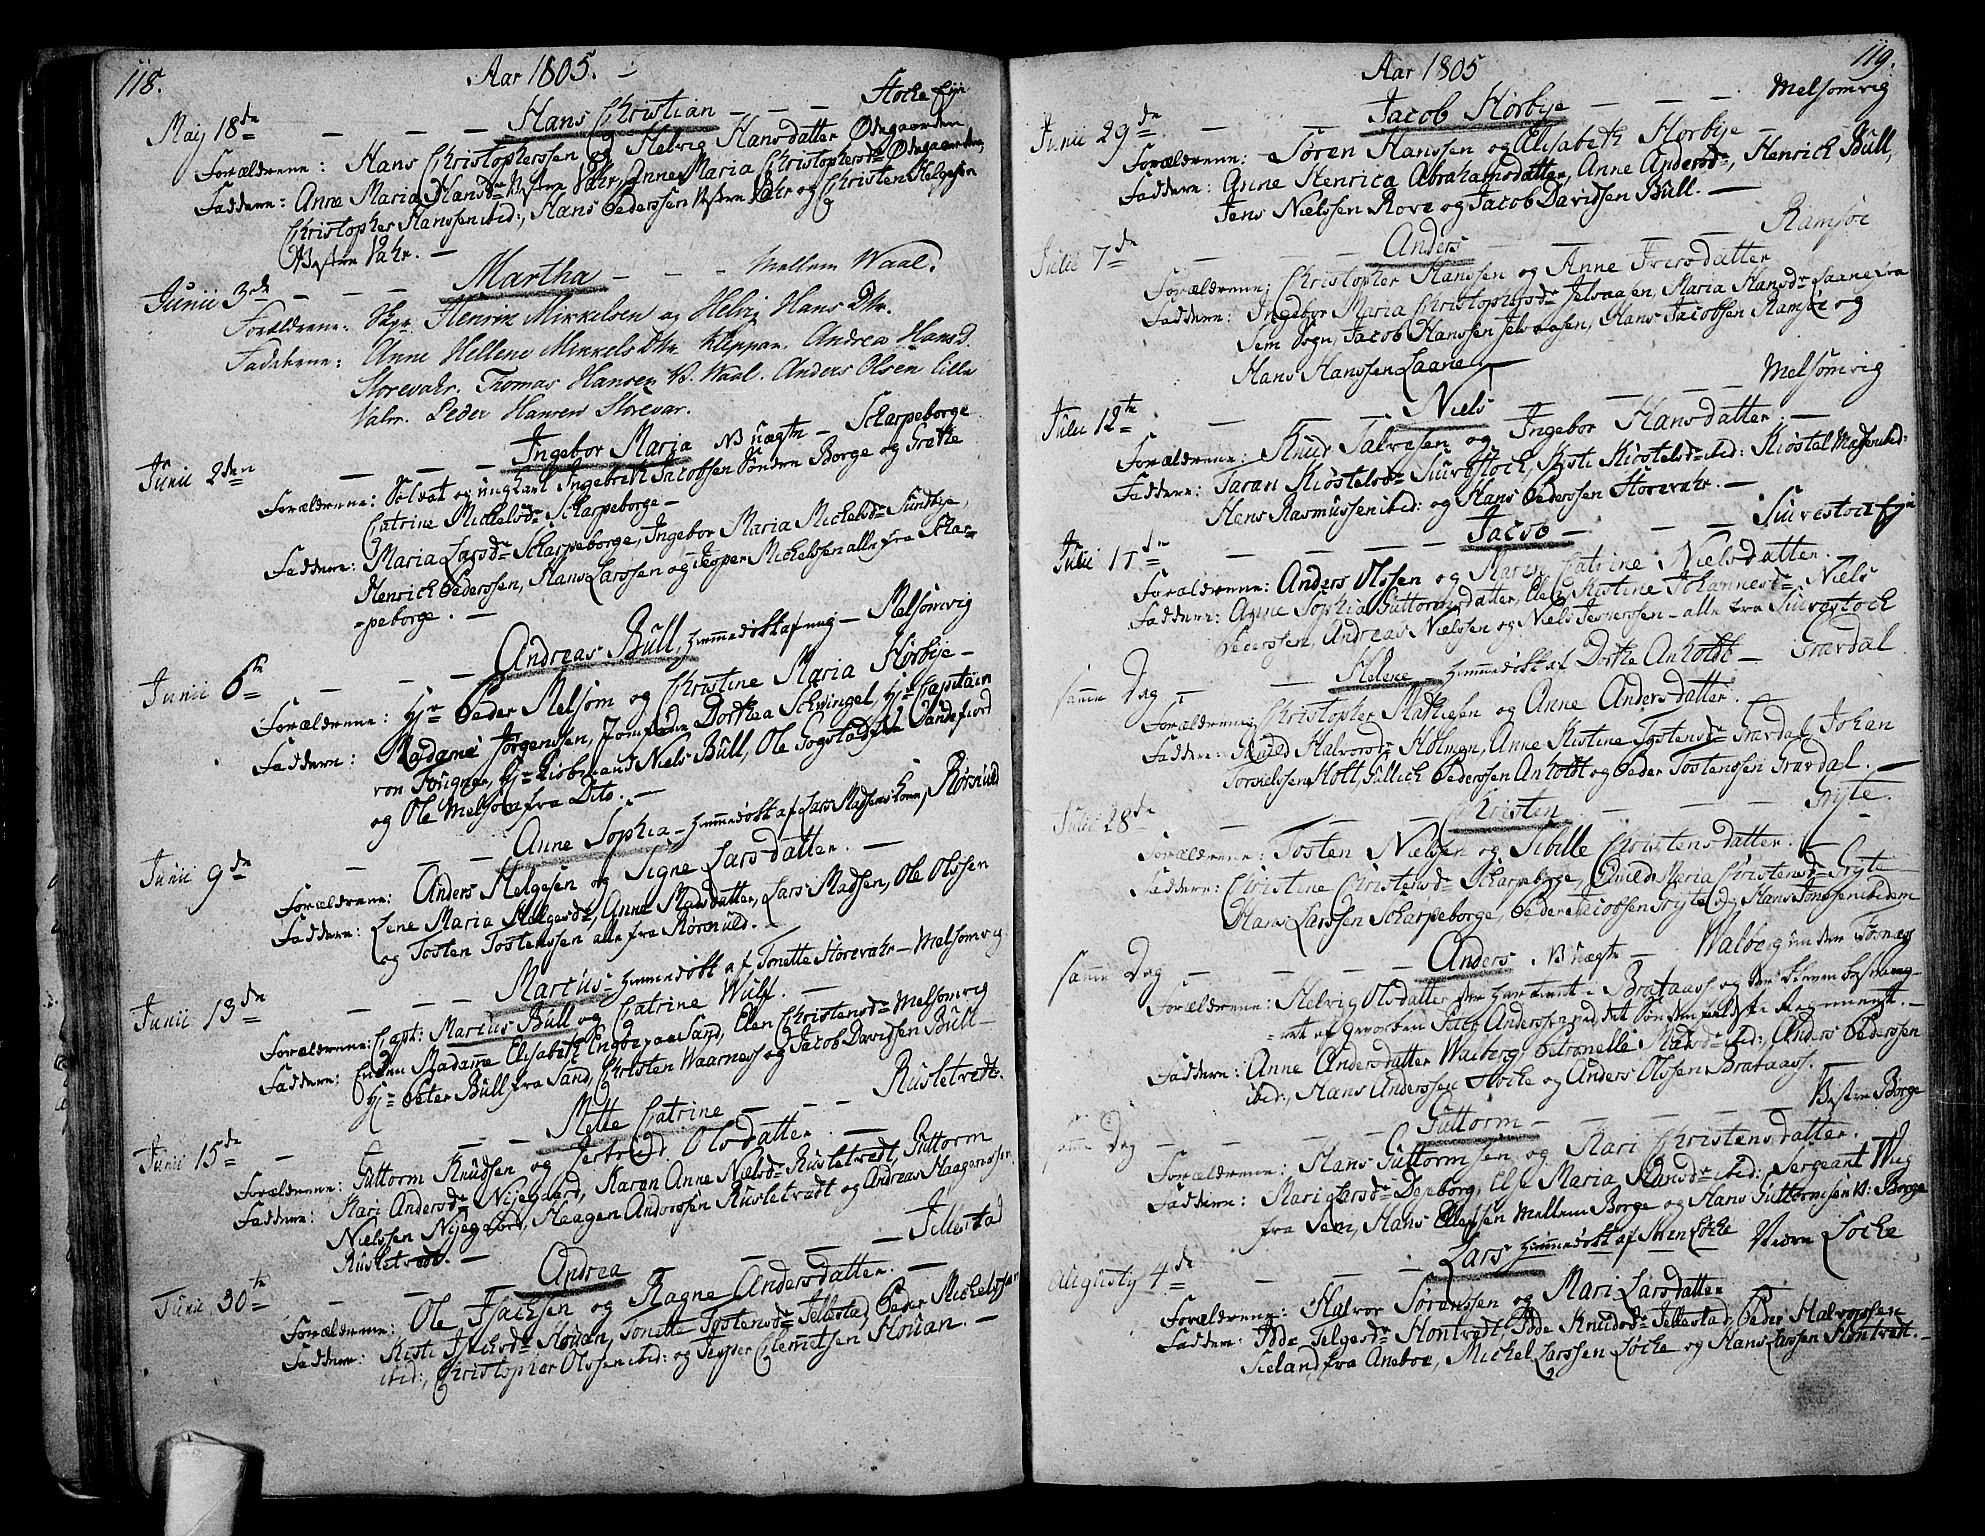 118.
Aar 1805.
May 18de — — — Hans Christian — — — Stocke Eje
Forældrene: Hans Christopherssen og Helvig Hansdatter Ødegaarden
Faddere: Anne Maria Hansdr Vestre Vahr, Anne Maria Christophersdr Ødegaarden,
Christopher Hanssen ibid:, Hans Pederssen Vestre Vahr og Christen Helgesen
Vestre Vahr. —
Junii 3de — — — Martha — — — Mellem Waal.
Forældrene: Henrik Mikkelsen og Helvig Hans Dtr.
Faddere: Anne Hellene Mikkels Dtr Kleppan. Andrea Hans D.
Storevahr. Thomas Hansen V. Waal. Anders Olsen lille
Vahr. Peder Hansen Storevar.
Junii 2den — — — Ingebor Maria NB uægte — Scharpeborge
Forældrene: Soldat og ungkarl Ingebreth Jacobsen Søndre Borge og
Catrine Michelsdr Scharpeborge —
Faddere: Maria Larsdr Scharpeborge, Ingebor Maria Michelsdr Sundbye,
Henrich Pederssen, Hans Larssen og Jesper Michelssen alle fra Schar-
-peborge. —
Junii 6te — — — Andreas Bull, hjemmedøbt af mig — Melsomvig
Forældrene: Hr Peder Melsom og Christine Maria Hørbye —
Faddere: Madame Jørgenssen, Jomfrue Dorthea Schwingel, Hr Capitain
von Hr Niels Bull, Ole Gogstad fra Sandefiord
og Ole Melsom fra Dito. —
Junii 9de — — — Anne Sophia — hjemmedøbt af Lars Madsens kone, Rørkuld
Forældrene: Anders Helgesen og Signe Larsdatter. —
Faddere: Lene Maria Helgesdr, Anne Madsdatter, Lars Madsen, Ole Olssen
og Tosten Tostenssen alle fra Rørkuld. —
Junii 13de — — Marcus — hjemmedøbt af Tonette Storevahr — Melsomvig
Forældrene: Capt: Marcus Bull og Catrine Wulf. —
Faddere: Madame Elisabeth Engbye paa Sand, Elen Christensdr Melsomvig
Hr Peter Bull fra Sand, Christen Waarness og Jacob Davidsen Bull —
Junii 15de — — — Mette Catrine — — — Rusletvedt.
Forældrene: Guttorm Knudsen og Jertrud Olsdatter. —
Faddere: Kari Andersdr Nijegaard, Karen Anne Nielsdr Rusletvedt, Guttorm
Nielssen Nijegaard, Haagen Anderssen Rusletvedt og Andreas Haagenssen
Rusletvedt. —
Junii 30te — — — Andrea — — — Jellestad
Forældrene: Ole Isachsen og Ragne Andersdatter. —
Faddere: Kisti Isachsdr Houan, Tonette Tostensdr Jellestad, Peder Michelssen
ibid:, Christopher Olssen ibid: og Jesper Clemetsen Houan. —
119.
Aar 1805
Junii 29de — — — Jacob Hørbye — — — Melsomvig
Forældrene: Søren Hanssen og Elisabeth Hørbye —
Faddere: Anne Henrica Abrahamsdatter, Anne Andersdr, Henrich Bull,
Jens Nielssen Rove og Jacob Davidsen Bull. —
Julii 7de — — — Anders — — — Ramsøe
Forældrene: Christopher Hanssen og Anne Iversdatter
Faddere: Ingebor Maria Christophersdr Jelsaasen, Maria Hansdr Laane fra
Sem Sogn, Jacob Hanssen Jelsaasen, Hans Jacobsen Ramsøe og
Hans Hanssen Laane. —
Julii 12te — — — Niels — — — Melsomvig
Forældrene: Knud Talvesen og Ingebor Hansdatter. —
Faddere: Taran Kiøstelsdr Siurestock, Kisti Kiøstelsdr ibid: Kiøstel Madsen ibid:
Hens Rasmussen ibid: og Hans Pederssen Storevahr. —
Julii 17de — — — Jacob — — — Siurestock Eje
Forældrene: Anders Olssen og Maren Catrine Nielsdatter.
Faddere: Anne Sophia Guttormsdatter, Elen Kistine Johannesdr Niels
Pederssen, Andreas Nielssen og Niels Jesperssen — alle fra Siurestock
samme Dag — — Helene — hjemmedøbt af Dorthe Anholdt — Gravdal
Forældrene: Christopher Mathiesen og Anne Andersdatter.
Faddere: Halvorsdr Holmen, Anne Kistine Tostensdr Gravdal, Johan
Tornielssen Holt, Gullich Pederssen Anholdt og Peder Tostenssen Gravdal. —
Julii 28de — — — Christen — — — Gryte.
Forældrene: Tosten Nielssen og Sibille Christensdatter. —
Faddere: Christine Christensdr Scharpeborge, Gunild Maria Christensdr Gryte —
Hans Larssen Scharpeborge, Peder Jacobssen Gryte og Hans Tonssen ibidem
samme Dag — — — Anders NB uægte — Walberg under Fornæss
Forældrene: Helvig Olsdatter Brataass og
af Gevorben Anderssen paa det Søndenfieldske Regimentt. —
Faddere: Anne Andersdatter Walberg, Petronelle Madsdr ibid: Anders Pederssen
ibid:, Hans Anderssen Stocke og Anders Olssen Brataass. —
samme Dag — — — Guttorm — — — Vestre Borge
Forældrene: Hans Guttormsen og Kari Christensdatter.
Faddere: Mari Larsdr Deneborg, Else Maria Hansdr ibid: Sergeant Wiig
fra Sem, Hans Ellefssen Mellem Borge og Hans Guttormsen V: Borge
Augusty 4de — — — Lars hjemmedøbt af Søren Løcke — Nedre Løcke
Forældrene: Halvor Sørenssen og Mari Larsdatter
Faddere: Idde Helgesdr Hontvedt, Idde Knudsdr Jellestad, Peder Halvorssen
Sieland fra Aneboe, Michel Larssen Løcke og Hans Larssen Hontvedt. —